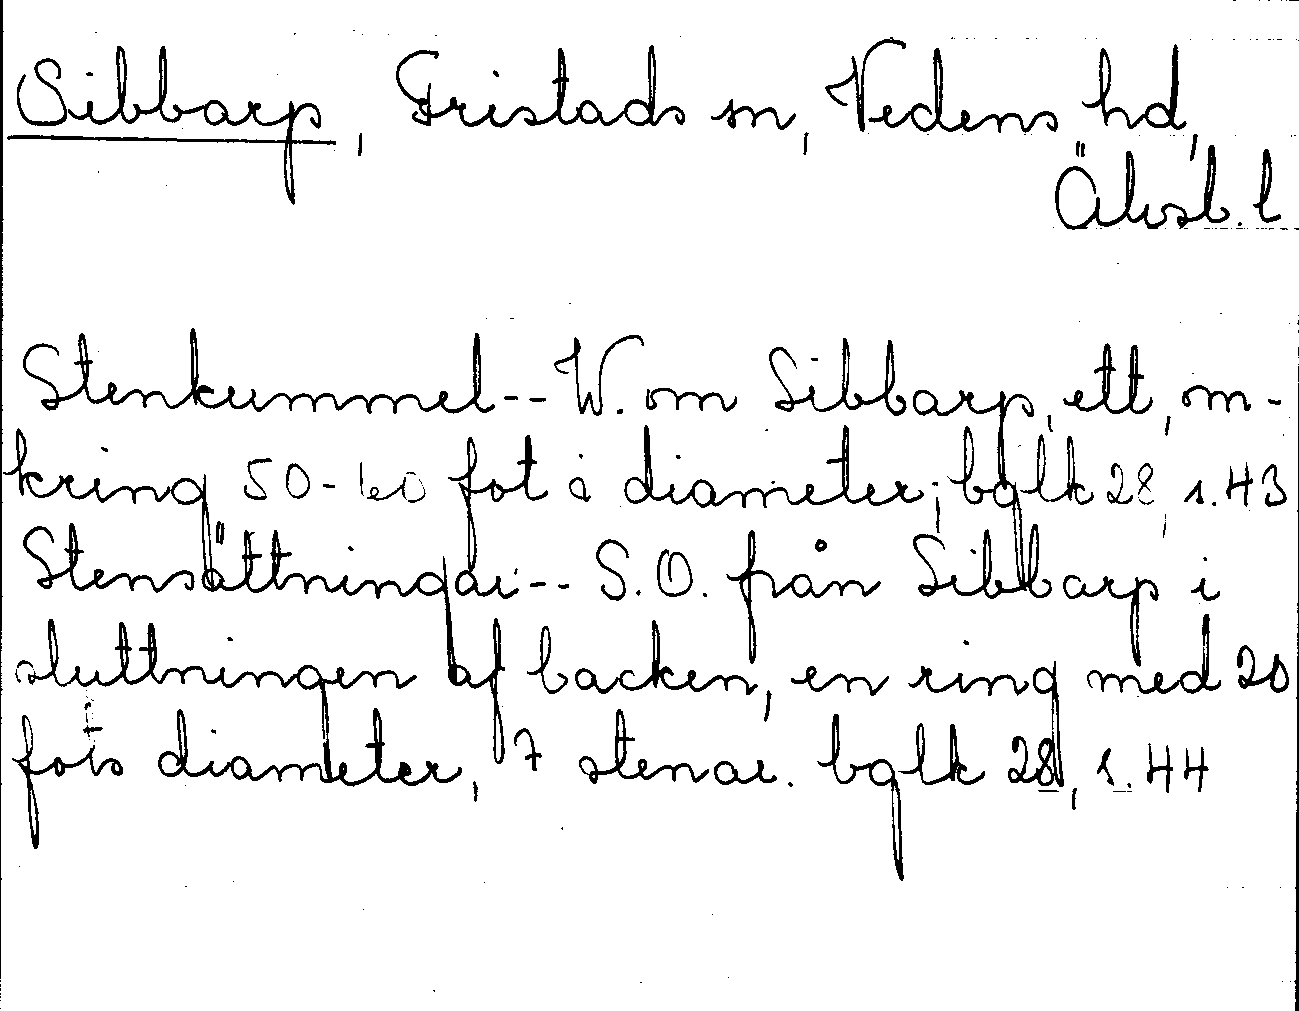 Sibbarp, Fristads sn, Vedens hd,
Älvsb. l.
Stenkummel -- W. om Sibbarp, ett, om-
kring 50-60 fot i diameter; bglk 28, s. 43
Stensättningar -- S.O. från Sibbarp i
sluttningen af backen, en ring med 20
fots diameter, 7 stenar. bglk 28, s. 44